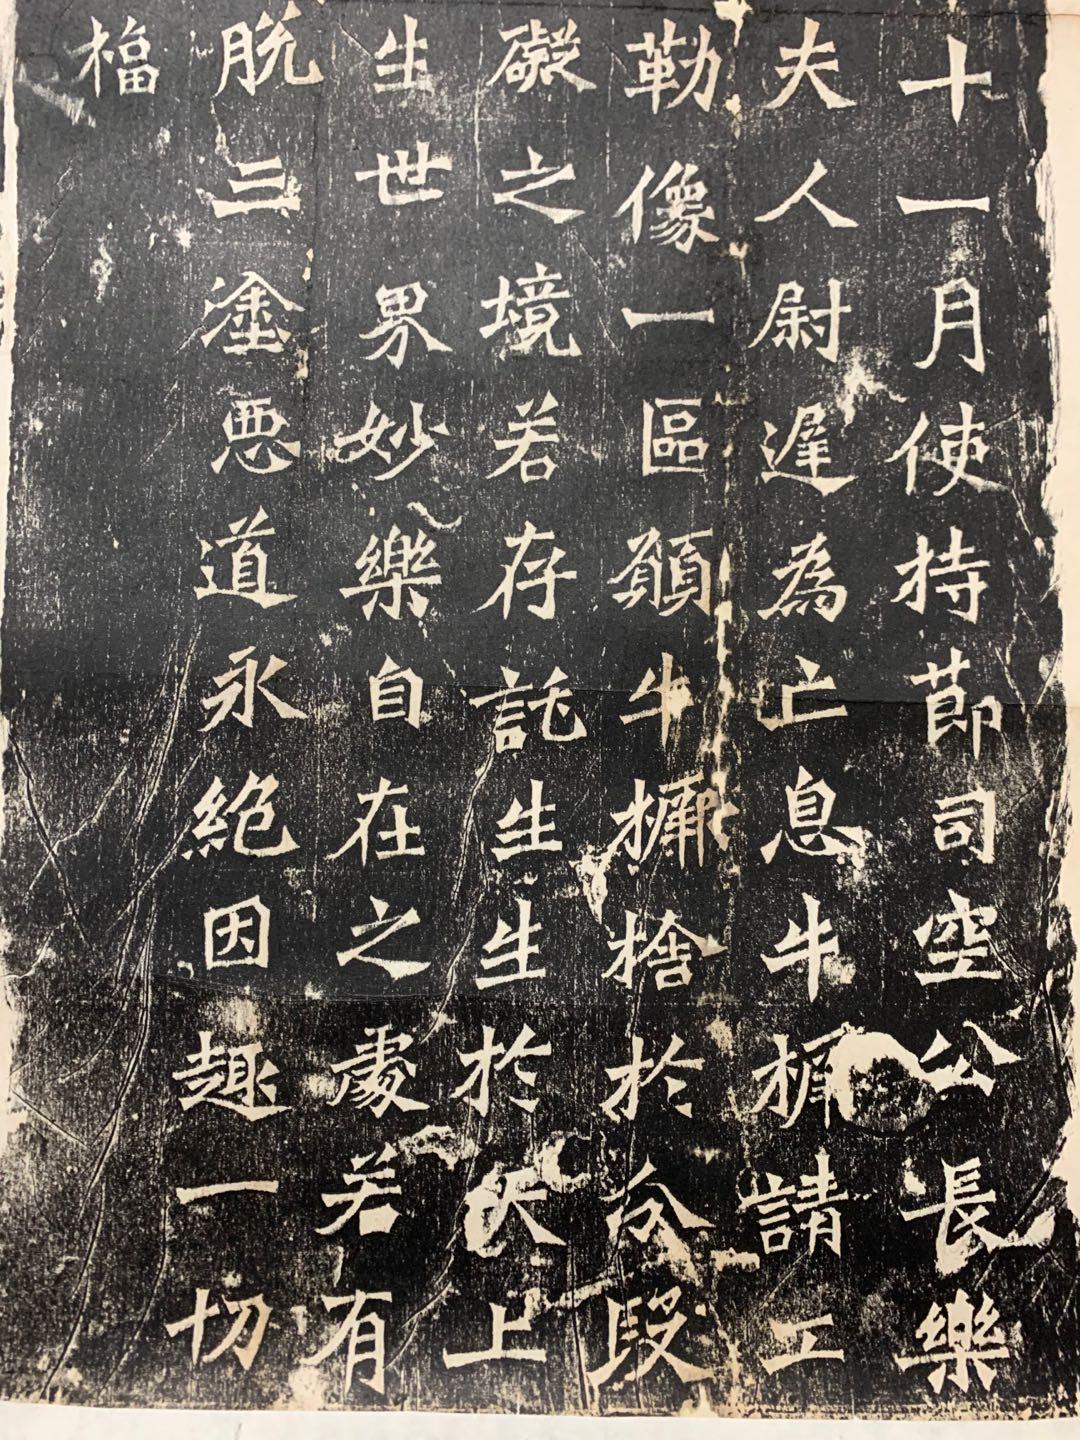 十一月使持節司空公長樂
夫人尉遲為亡息牛橛請工
勒像一區願牛橛捨於分段
礙之境若存託生生於天上
生世界妙樂自在之處若有
脫三塗惡道永絕因趣一切
福